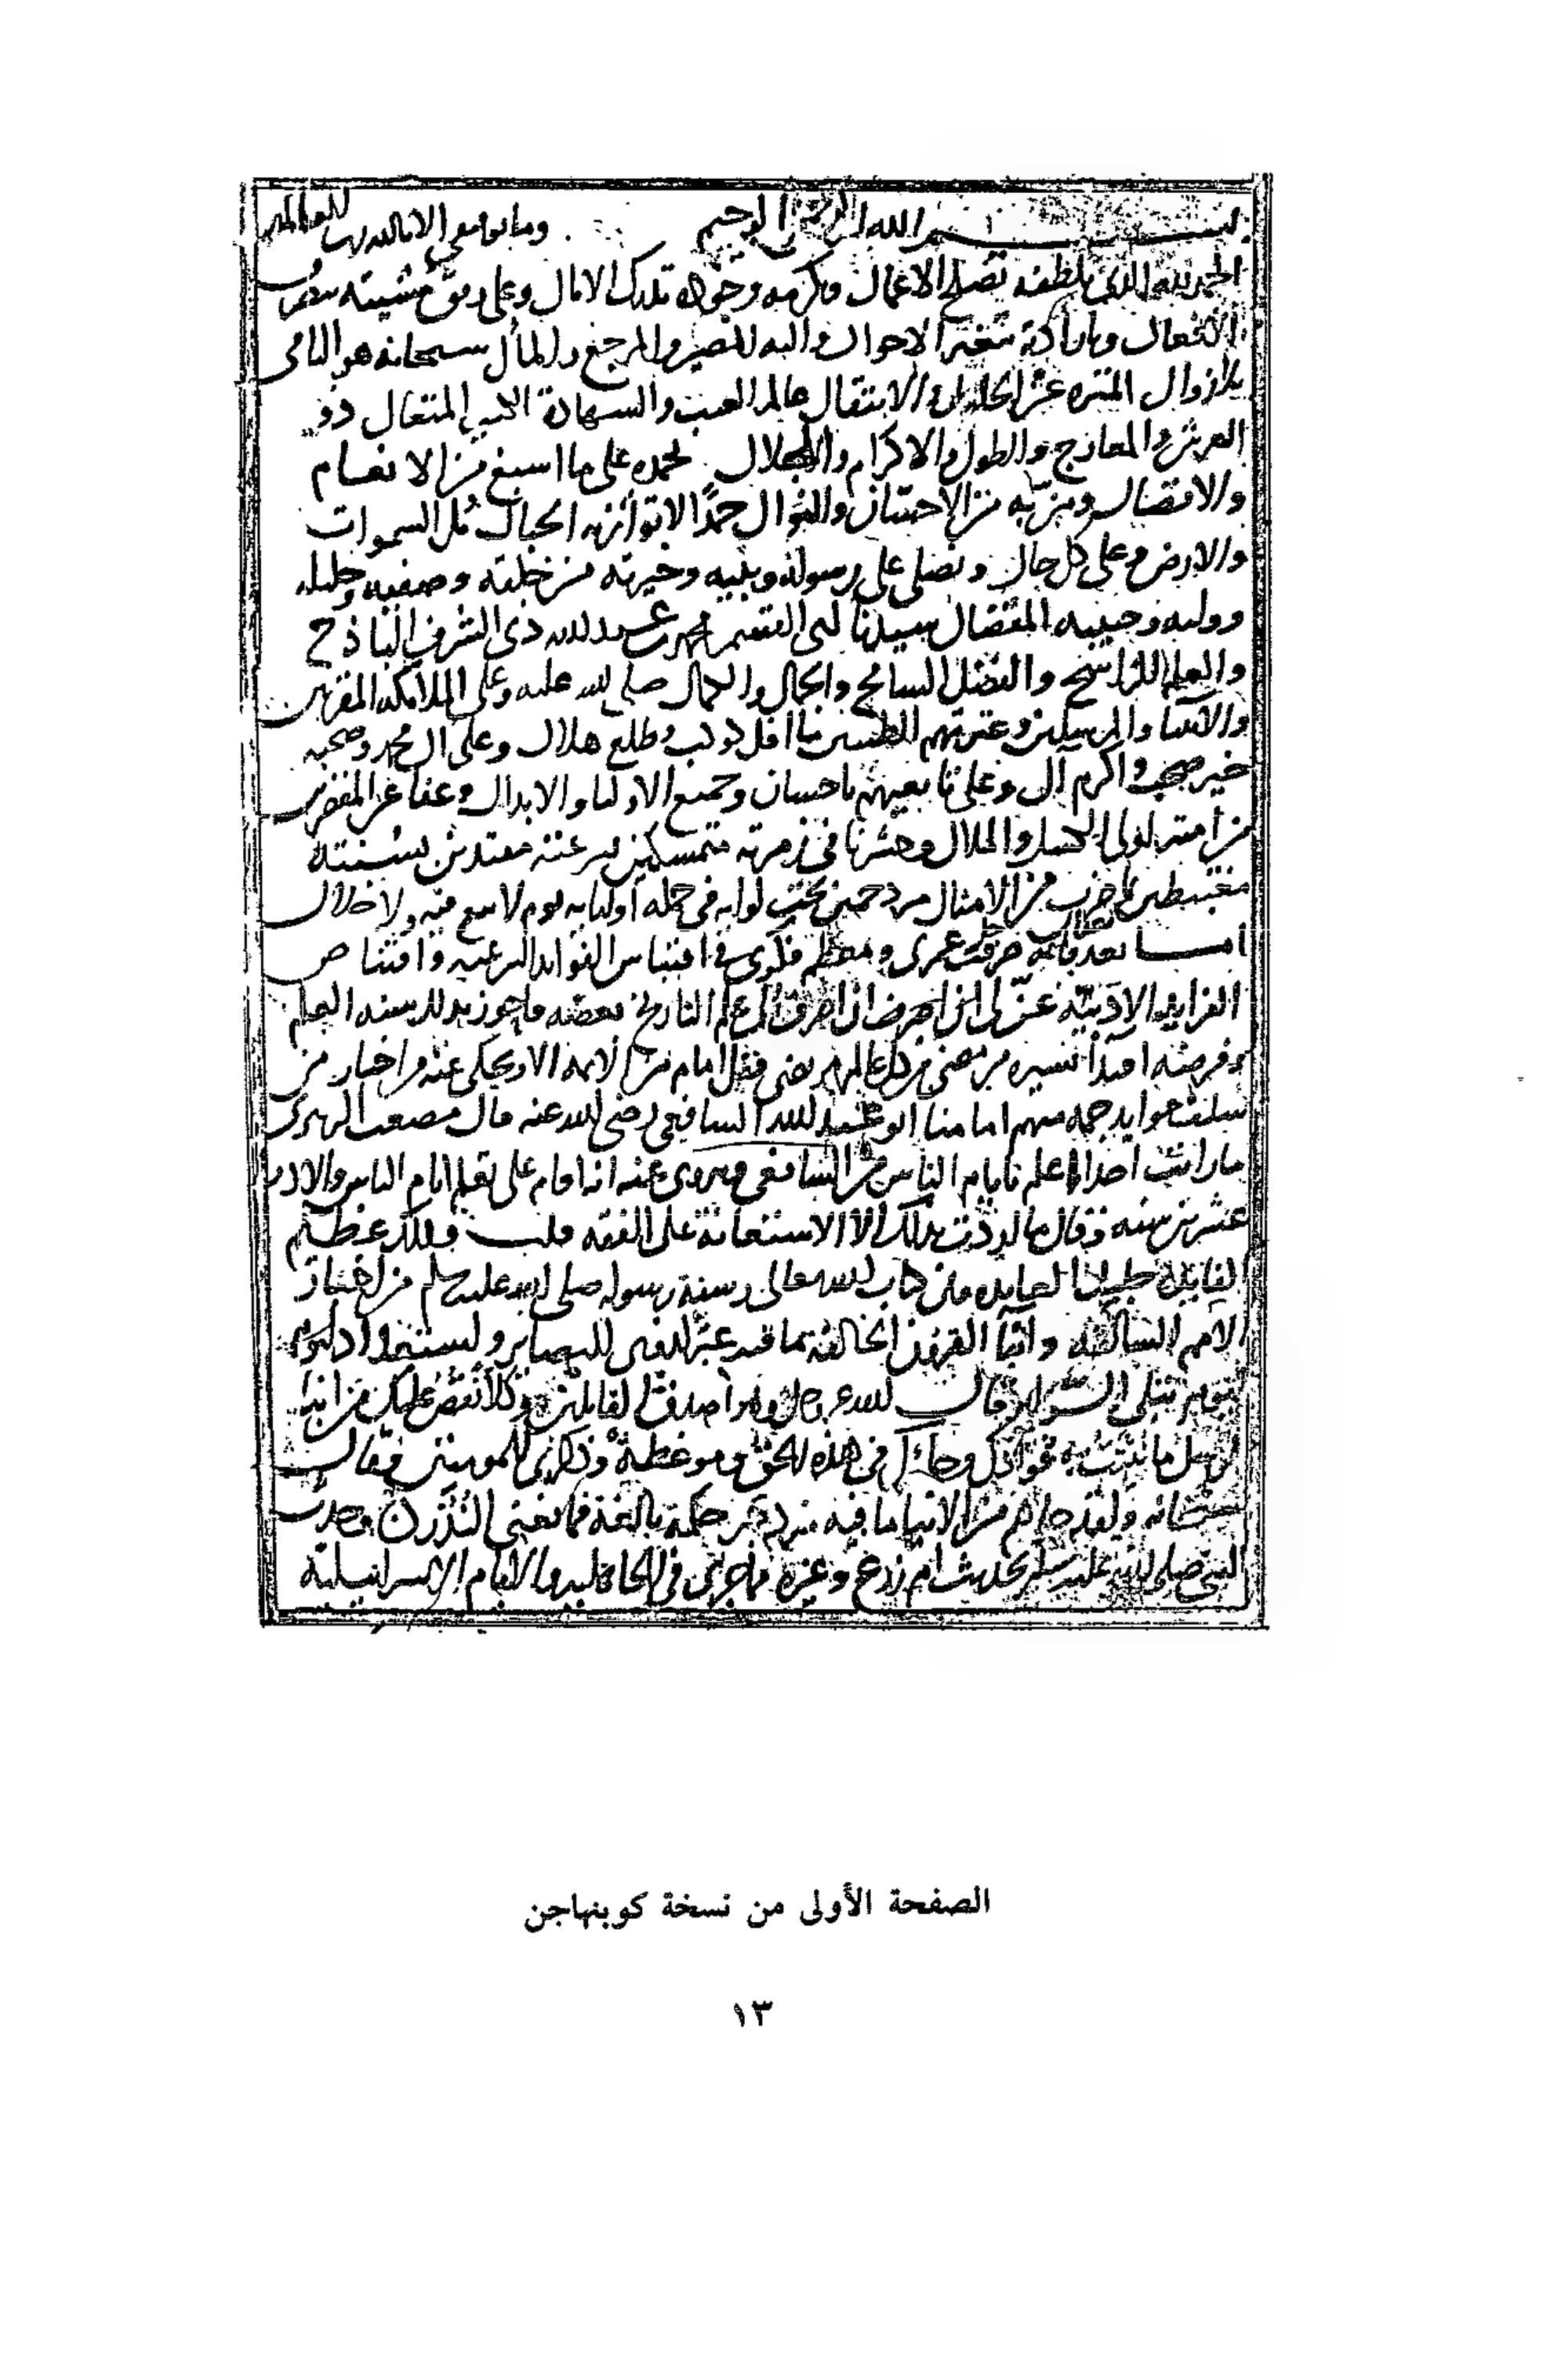 بسم الله الرحمن الرحيم وما توفيقي الا بالله رب العالمين
الحمد لله الذي بلطفه تصلح الاعمال وبكرمه وجوده تدرك الامال وعلى وفق مشيته تتصرف
الافعال وبارادته تتغير الاحوال واليه المصير والمرجع والمآل سبحانه هو الباقي
بلا زوال المنزه عن الحلول والانتقال عالم الغيب والشهادة الكبير المتعال ذو
العرش والمعارج والطول والاكرام والجلال نحمده على ما اسبغ من الانعام
والافضال ومن به من الاحسان والنوال حمدًا لا توازنه الجبال مل السموات
والارض وعلى كل حال ونصلي على رسوله ونبيه وخيرته من خلقته وصفيه وخليله
ووليه وحبيبه المفضال سيدنا ابي القسم محمد بن عبد الله ذي الشرف الباذخ
والعلم الراسخ والفضل السامح والجمال والكمال صلى الله عليه وعلى الملائكة المقربين
والانبيا والمرسلين وعترتهم الطيبين ما افل كوكب وطلع هلال وعلى ال محمد وصحبه
خير صحب واكرم آل وعلى تابعيهم باحسان وجميع الاوليا والابدال وعفا عن المقصرين
من امته اولي الكسل والملال وحشرنا في زمرته متمسكين بشرعته مقتدين بسنته
مغتبطين بما ضرب من الامثال مزدحمين تحت لوايه في جملة اوليايه يوم لا بيع فيه ولا خلال
اما بعد فانه لما صرفت عمري ومعظم فكري في اقتباس الفوايد الشرعية واقتناص
الفرايد الادبية عن لي ان اصرف الى علم التاريخ بعضه فاحوز بذلك سنة العلم
وفرضه اقتدا بسيرة من مضى من كل عالم مرضي فقل امام من الائمة الا ويحكى عنه من اخبار من
سلف فوايد جمه منهم امامنا ابو عبد الله الشافعي رضي الله عنه قال مصعب الزبيري
ما رايت احدا اعلم بايام الناس من الشافعي ويروى عنه انه اقام على تعلم ايام الناس والادب
عشرين سنه وقال ما اردت بذلك الا الاستعانة على الفقه قلت وذلك عظيم
الفايدة جليل العايده وفي كتاب الله تعالى وسنة رسوله صلى الله عليه وسلم من اخبار
الامم السالفه وانبآ القرون الخالفة ما فيه عبر لذوي البصاير واستعداد ليوم
تبلى السراير قال الله عز وجل وهو اصدق القايلين وكلا نقص عليك من انبا
الرسل ما نثبت به فوادك وجاءك في هذه الحق وموعظة وذكرى للمومنين وقال
سبحانه ولقد جاءهم من الانبا ما فيه مزدجر حكمة بالغة فما تغني النذر وحدث
النبي صلى الله عليه وسلم بحديث ام زرع وغيره مما جرى في الجاهلية والايام الاسرائيلية
الصفحة الأولى من نسخة كوبنهاجن
١٣